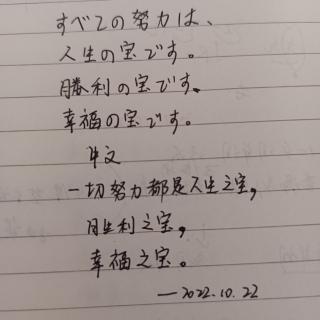 すべての努力は、
人生の宝です。
勝利の宝です。
幸福の宝です。
中文
一切努力都是人生之宝，
胜利之宝，
幸福之宝。
—2022.10.22